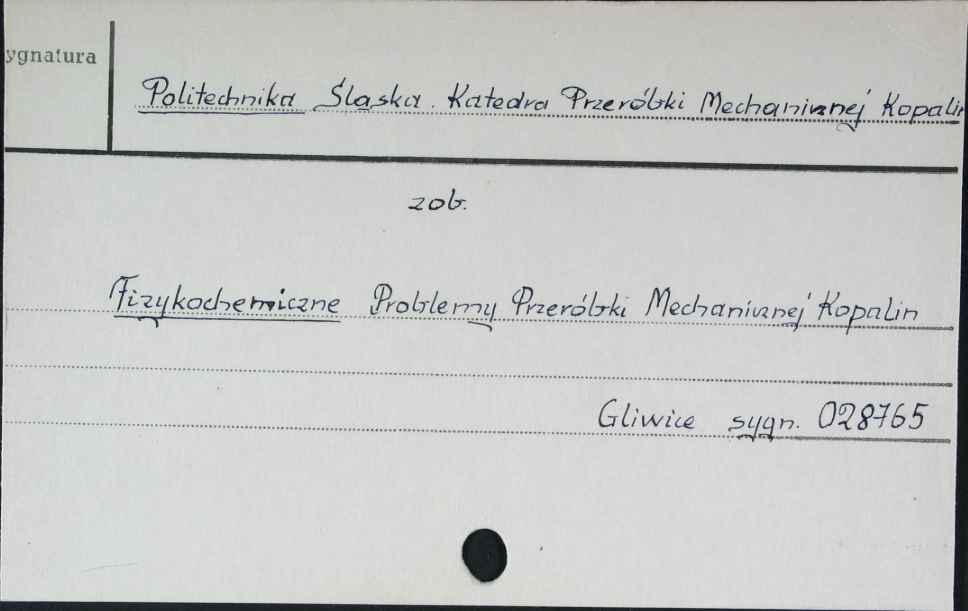 ygnatura
Politechnika Śląska. Katedra Przeróbki Mechanicznej Kopalin
zob.
Fizykochemiczne Problemy Przeróbki Mechanicznej Kopalin
Gliwice sygn. 028765